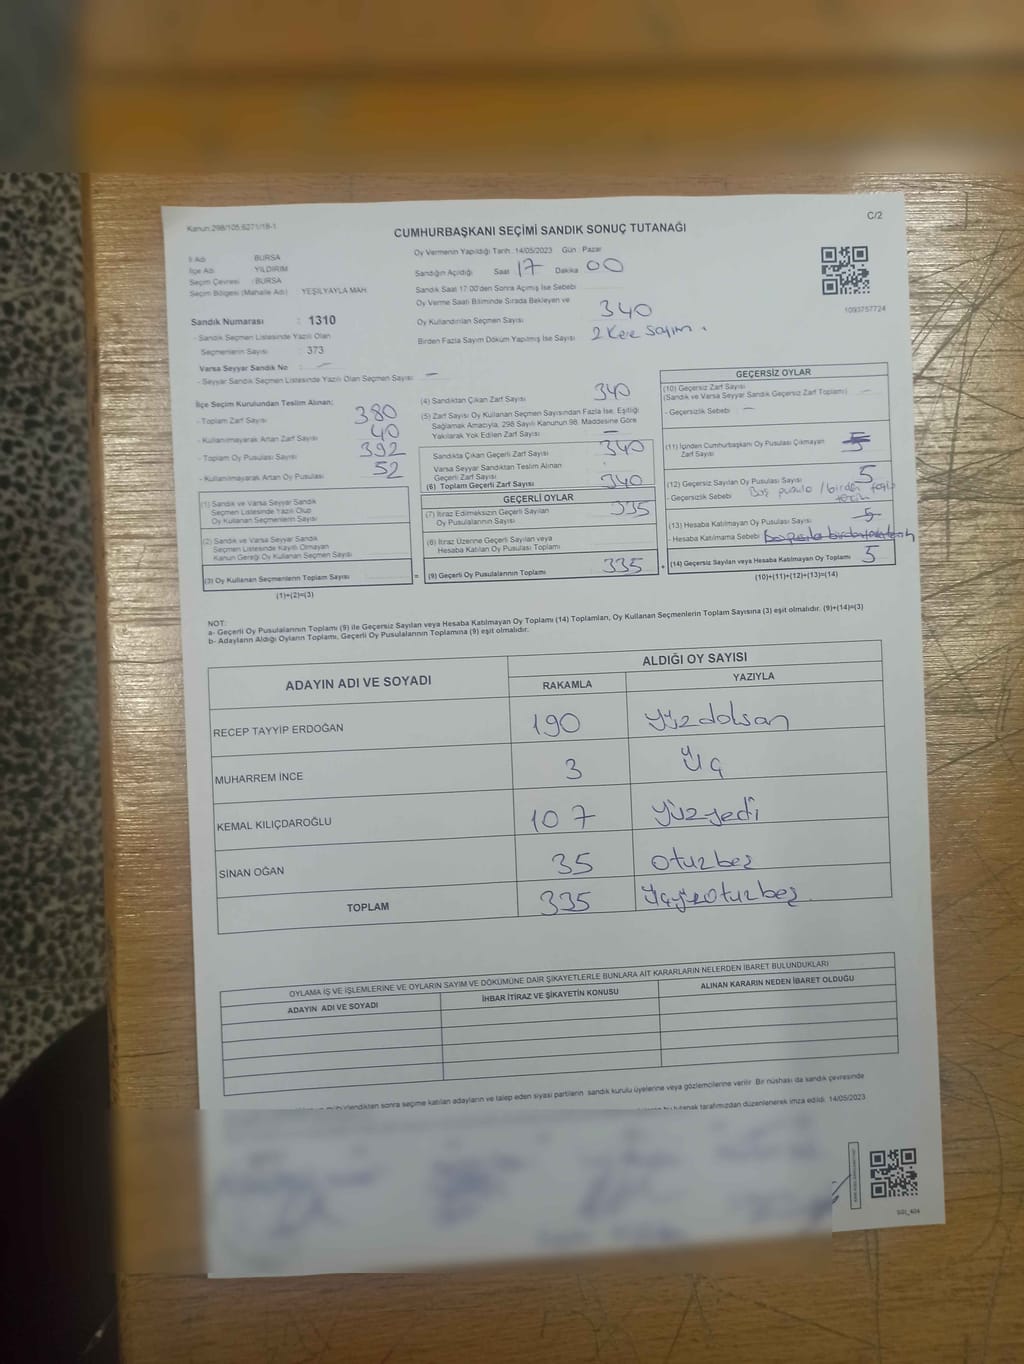 Kanun:298/105,6271/18-1
C/2
CUMHURBAŞKANI SEÇİMİ SANDIK SONUÇ TUTANAĞI
İl Adı BURSA
İlçe Adı YILDIRIM
Seçim Çevresi : BURSA
Seçim Bölgesi (Mahalle Adı) YEŞİLYAYLA MAH.
Sandık Numarası : 1310
- Sandık Seçmen Listesinde Yazılı Olan
Seçmenlerin Sayısı : 373
Varsa Seyyar Sandık No : —
- Seyyar Sandık Seçmen Listesinde Yazılı Olan Seçmen Sayısı : —
Oy Vermenin Yapıldığı Tarih :14/05/2023 Gün : Pazar
Sandığın Açıldığı Saat 17 Dakika 00
Sandık Saat 17:00'den Sonra Açılmış İse Sebebi
Oy Verme Saati Bitiminde Sırada Bekleyen ve
Oy Kullandırılan Seçmen Sayısı 340
Birden Fazla Sayım Döküm Yapılmış İse Sayısı 2 Kere Sayım.
1093757724
İlçe Seçim Kurulundan Teslim Alınan:
- Toplam Zarf Sayısı 380
- Kullanılmayarak Artan Zarf Sayısı 40
- Toplam Oy Pusulası Sayısı 392
- Kullanılmayarak Artan Oy Pusulası 52
(1) Sandık ve Varsa Seyyar Sandık
Seçmen Listesinde Yazılı Olup
Oy Kullanan Seçmenlerin Sayısı
(2) Sandık ve Varsa Seyyar Sandık
Seçmen Listesinde Kayıtlı Olmayan
Kanun Gereği Oy Kullanan Seçmen Sayısı
(3) Oy Kullanan Seçmenlerin Toplam Sayısı
(1)+(2)=(3)
=
(4) Sandıktan Çıkan Zarf Sayısı 340
(5) Zarf Sayısı Oy Kullanan Seçmen Sayısından Fazla İse, Eşitliği
Sağlamak Amacıyla, 298 Sayılı Kanunun 98. Maddesine Göre
Yakılarak Yok Edilen Zarf Sayısı —
Sandıkta Çıkan Geçerli Zarf Sayısı 340
Varsa Seyyar Sandıktan Teslim Alınan
Geçerli Zarf Sayısı
(6) Toplam Geçerli Zarf Sayısı 340
GEÇERLİ OYLAR
(7) İtiraz Edilmeksizin Geçerli Sayılan
Oy Pusulasının Sayısı 335
(8) İtiraz Üzerine Geçerli Sayılan veya
Hesaba Katılan Oy Pusulası Toplamı
(9) Geçerli Oy Pusulalarının Toplamı 335
+
GEÇERSİZ OYLAR
(10) Geçersiz Zarf Sayısı
(Sandık ve Varsa Seyyar Sandık Geçersiz Zarf Toplamı) —
- Geçersizlik Sebebi : —
(11) İçinden Cumhurbaşkanı Oy Pusulası Çıkmayan
Zarf Sayısı 5
(12) Geçersiz Sayılan Oy Pusulası Sayısı 5
- Geçersizlik Sebebi Boş pusula / birden fazla
tercih
(13) Hesaba Katılmayan Oy Pusulası Sayısı 5
- Hesaba Katılmama Sebebi
(14) Geçersiz Sayılan veya Hesaba Katılmayan Oy Toplamı 5
(10)+(11)+(12)+(13)=(14)
NOT:
a- Geçerli Oy Pusulalarının Toplamı (9) ile Geçersiz Sayılan veya Hesaba Katılmayan Oy Toplamı (14) Toplamları, Oy Kullanan Seçmenlerin Toplam Sayısına (3) eşit olmalıdır. (9)+(14)=(3)
b- Adayların Aldığı Oyların Toplamı, Geçerli Oy Pusulalarının Toplamına (9) eşit olmalıdır.
ADAYIN ADI VE SOYADI
ALDIĞI OY SAYISI
RAKAMLA YAZIYLA
RECEP TAYYİP ERDOĞAN 190 Yüzdoksan
MUHARREM İNCE 3 Üç
KEMAL KILIÇDAROĞLU 107 Yüzyedi
SİNAN OĞAN 35 otuzbeş
TOPLAM 335 Üçyüzotuzbeş
OYLAMA İŞ VE İŞLEMLERİNE VE OYLARIN SAYIM VE DÖKÜMÜNE DAİR ŞİKAYETLERLE BUNLARA AİT KARARLARIN NELERDEN İBARET BULUNDUKLARI
ADAYIN ADI VE SOYADI İHBAR İTİRAZ VE ŞİKAYETİN KONUSU ALINAN KARARIN NEDEN İBARET OLDUĞU
sonra seçime katılan adayların ve talep eden siyasi partilerin sandık kurulu üyelerine veya gözlemcilerine verilir. Bir nüshası da sandık çevresinde
tutanak tarafımızdan düzenlenerek imza edildi. 14/05/2023